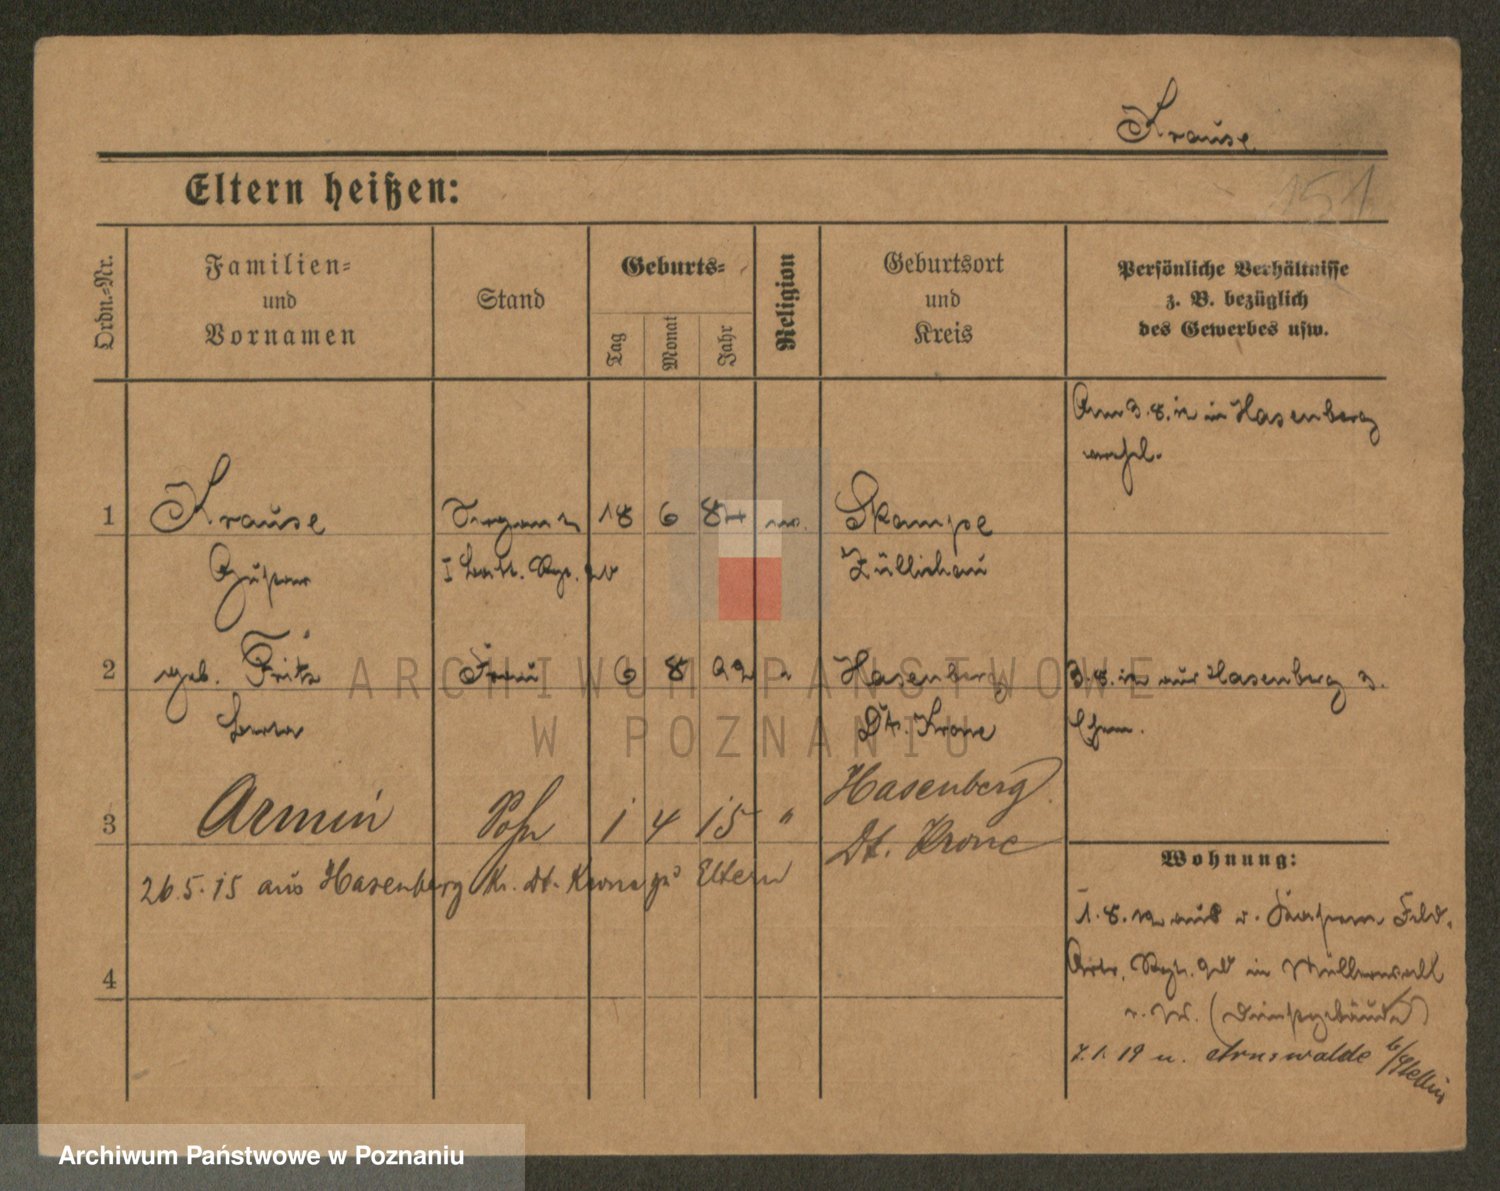 Krause
151
Eltern heißen:
Ordn.-Nr.
Familien-
und
Vornamen
Stand
Geburts-
Tag
Monat
Jahr
Religion
Geburtsort
und
Kreis
Persönliche Verhältnisse
z. B. bezüglich
des Gewerbes usw.
Am 3.8.12 in Hasenberg
verehel.
1 Krause 18 6 87 ev. Skampe
Gustav I Züllichau
2 geb. Fritz Frau 6 8 92 " Hasenberg 3.8.12 aus Hasenberg z.
Dt. Krone Ehem.
3 Armin Sohn 1 4 15 " Hasenberg
Dt. Krone
26.5.15 aus Hasenberg Kr. Dt. Krone zu Eltern
4
Wohnung:
1.8.12 aus d. Feld.
Artr. Regt. in
(Dienstgebäude)
7.1.19 n. Arnswalde b/Stettin
ARCHIWUM PAŃSTWOWE
W POZNANIU
Archiwum Państwowe w Poznaniu